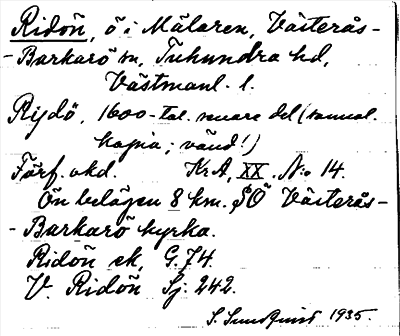 Ridön, ö i Mälaren, Västerås-
-Barkarö sn, Tuhundra hd,
Västmanl. l.
Rijdö, 1600-tal. senare del (samml.
kopia; vänd!)
Förf. okd. Kr A, XX. N:o 14.
Ön belägen 8 km. SÖ Västerås-
-Barkarö kyrka.
Ridön ek, G. 74.
V. Ridön Sj. 242.
S. Sundquist 1935.